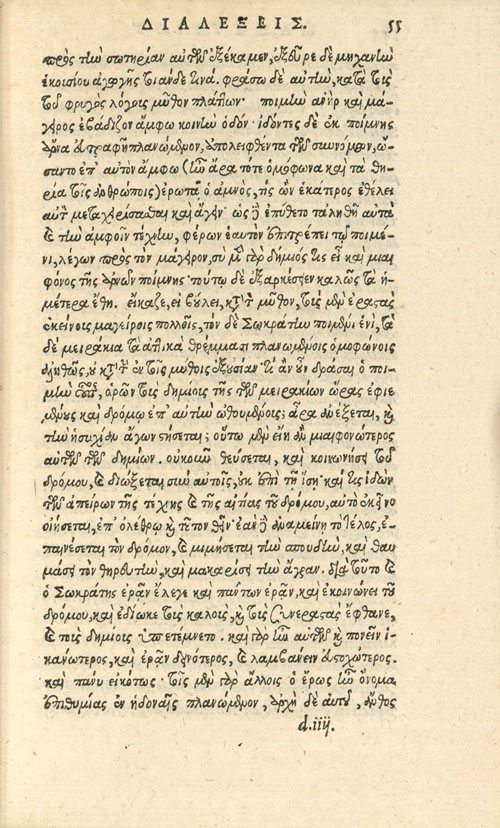 ΔΙΑΛΕΞΕΙΣ. 55
πρὸς τὴν σωτηρίαν αὐτῶν ἐξέκαμεν, ἐξεῦρε δὲ μηχανὴν
ἑκουσίου ἀγωγῆς τιανδε τινά. φράσω δὲ αὐτὴν, κατὰ τοὺς
τοῦ φρυγὸς λόγοις μῦθον πλάττων· ποιμὴν ἀνὴρ καὶ μά-
γειρος ἐβάδιζον ἄμφω κοινὴν ὁδόν· ἰδόντες δὲ ἐκ ποίμνης
ἄρνα εὐτραφῆ πλανώμενον, ἀπολειφθέντα τῶν συννόμων, ὤ-
σαντο ἐπ' αὐτὸν ἄμφω (ἦν ἄρα τότε ὁμόφωνα καὶ τὰ θη-
ρία τοῖς ἀνθρώποις) ἐρωτᾷ ὁ ἀμνὸς, τίς ὢν ἑκάτερος ἐθέλει
αὐτὸν μεταχειρίσασθαι καὶ ἄγειν· ὡς δὲ ἐπύθετο τἀληθῆ αὐτὰ
καὶ τὴν ἀμφοῖν τέχνην, φέρων ἑαυτὸν ἐπιτρέπει τῷ ποιμέ-
νι, λέγων πρὸς τὸν μάγειρον, σὺ μὲν γὰρ δήμιός τις εἶ καὶ μιαι
φόνος τῆς ἀρνῶν ποίμνης· τούτῳ δὲ ἐξαρκέσει ἐν καλῶς τὰ ἡ-
μέτερα ἔχῃ. εἴκαζε, εἰ βούλει, κατὰ τὸν μῦθον, τοὺς μὲν ἐραστὰς
ἐκείνοις μαγείροις πολλοῖς, τὸν δὲ Σωκράτην ποιμένι ἑνὶ, τὰ
δὲ μειράκια τὰ ἀττικὰ θρέμμασι πλανωμένοις ὁμοφώνοις
ἀληθῶς, οὐ κατὰ τὴν ἐν τοῖς μύθοις ἐξουσίαν· τί ἂν οὖν δράσαι ὁ ποι-
μὴν οὗτος, ὁρῶν τοὺς δημίους τῆς τῶν μειρακίων ὥρας ἐφιε
μένους καὶ δρόμῳ ἐπ' αὐτὴν ὠθουμένους; ἆρα ἀνέξεται, καὶ
τὴν ἡσυχίαν ἄγων στήσεται; οὕτω μὲν εἴη ἂν μιαιφονώτερος
αὐτῶν τῶν δημίων. οὐκοῦν θεύσεται, καὶ κοινωνήσει τοῦ
δρόμου, καὶ διώξεται σὺν αὐτοῖς, οὐκ ἐπὶ τῇ ἴσῃ· καί τις ἰδὼν
τῶν ἀπείρων τῆς τέχνης καὶ τῆς αἰτίας τοῦ δρόμου, αὐτὸ ἐκεῖνο
οἰήσεται, ἐπ' ὀλέθρῳ καὶ τοῦτον θεῖν· ἐὰν δὲ ἀναμείνῃ τὸ τέλος, ἐ-
παινέσεται τὸν δρόμον, καὶ μιμήσεται τὴν σπουδὴν, καὶ θαυ
μάσει τὸν θηρευτὴν, καὶ μακαριεῖ τὴν ἄγραν. διὰ τοῦτο καὶ
ὁ Σωκράτης ἐρᾶν ἔλεγε καὶ πάντων ἐρᾶν, καὶ ἐκοινώνει τοῦ
δρόμου, καὶ ἐδίωκε τοὺς καλοὺς, καὶ τοὺς συνεραστὰς ἔφθανε,
καὶ τοὺς δημίους ὑπετέμνετο. καὶ γὰρ ἦν αὐτῶν καὶ πονεῖν ἱ-
κανώτερος, καὶ ἐρᾶν δεινότερος, καὶ λαμβάνειν εὐστοχώτερος.
καὶ πάνυ εἰκότως· τοῖς μὲν γὰρ ἄλλοις ὁ ἔρως ἦν ὄνομα
ἐπιθυμίας ἐν ἡδοναῖς πλανώμενον, ἀρχὴ δὲ αὐτοῦ, ἄνθος
d.iiij.